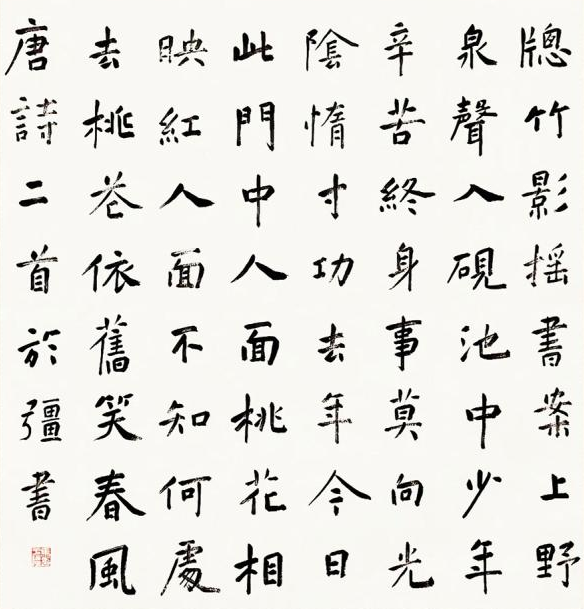 牕竹影摇書案上野
泉聲入硯池中少年
辛苦終身事莫向光
陰惰寸功去年今日
此門中人面桃花相
映紅人面不知何處
去桃花依舊笑春風
唐詩二首於彊書